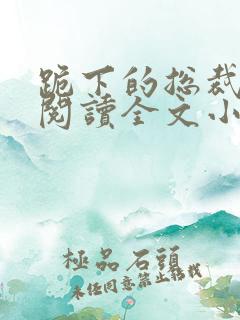 跪下的总裁
閱讀全文小
極品石頭
未经同意禁止转载